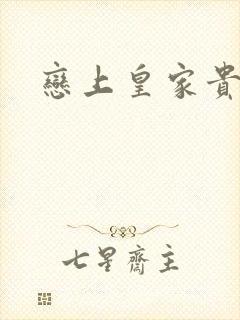 戀上皇家貴
七星齋主